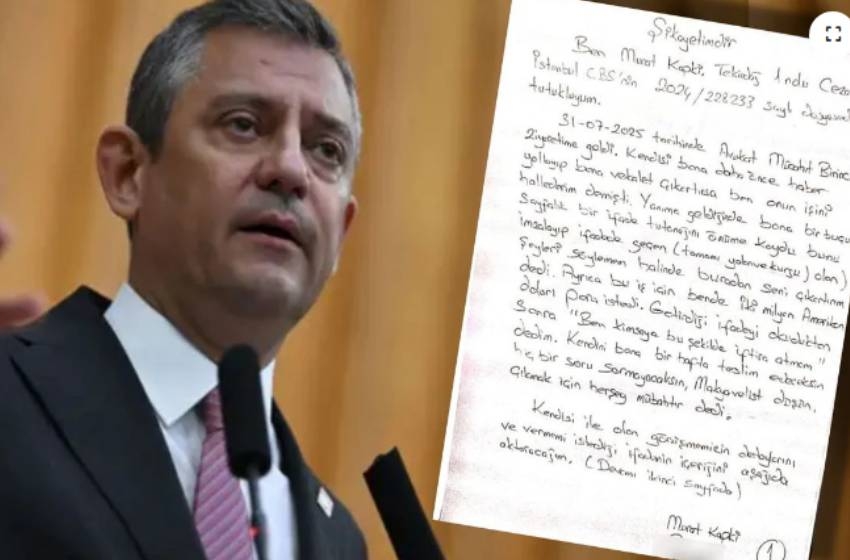 Şikayetimdir
Ben Murat Kapki. Tekirdağ 1 nolu Ceza
İstanbul CBS'nin 2024/228233 sayılı dosyasında
tutukluyum.
31-07-2025 tarihinde Avukat Mücahit Birinci
Ziyaretime geldi. Kendisi bana daha önce haber
yollayıp bana vekalet çıkartırsa ben onun işini
hallederim demişti. Yanıma geldiğinde bana bir buçuk
sayfalık bir ifade tutanağını önüme koydu bunu
imzalayıp ifadede geçen (tamamı yalan ve kurgu) olan)
şeyleri söylemem halinde buradan seni çıkartırım
dedi. Ayrıca bu iş için bende iki milyon Amerikan
doları para istedi. Getirdiği ifadeyi okuduktan
sonra "Ben kimseye bu şekilde iftira atmam"
dedim. Kendini bana bir hafta teslim edeceksin
hiç bir soru sormayacaksın, Makyavelist düşün,
çıkmak için herşey mübahtır dedi.
Kendisi ile olan görüşmemizin detaylarını
ve vermemi istediği ifadenin içeriğini aşağıda
aktaracağım. (Devamı ikinci sayfada)
Murat Kapki
1